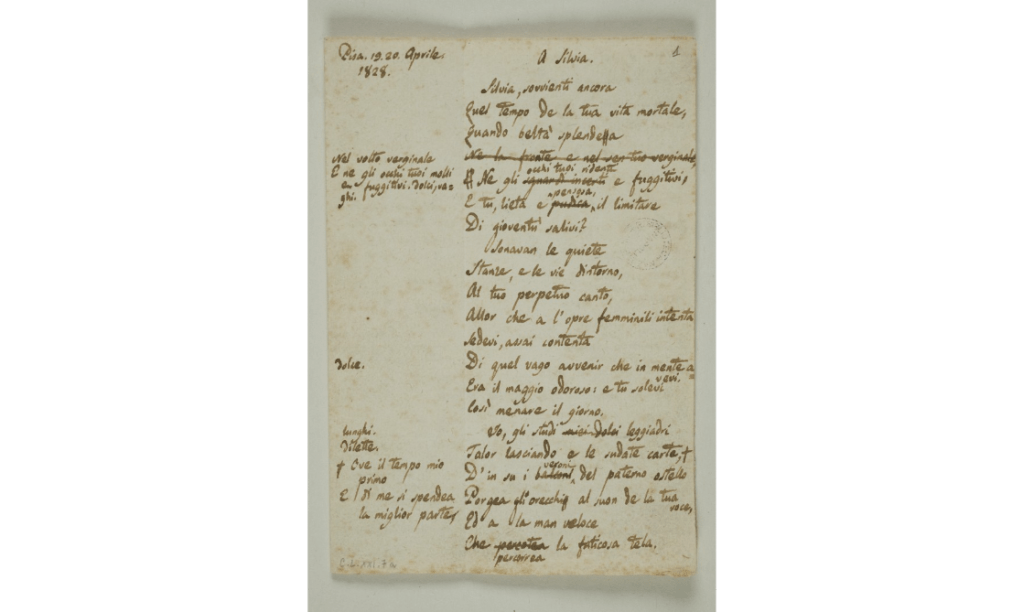 Pisa. 19. 20. Aprile.
1828.
A Silvia.
1
Silvia, sovvienti ancora
Quel tempo de la tua vita mortale,
Quando beltà splendea
Ne la fronte e nel sen tuo verginale
Nel volto verginale
E ne gli occhi tuoi molli
e fuggitivi. dolci, va-
ghi.
occhi tuoi ridenti
Ne gli sguardi incerti e fuggitivi,
pensosa,
E tu, lieta e pudica, il limitare
Di gioventù salivi?
Sonavan le quiete
Stanze, e le vie dintorno,
Al tuo perpetuo canto,
Allor che a l'opre femminili intenta
Sedevi, assai contenta
dolce.
Di quel vago avvenir che in mente a-
vevi.
Era il maggio odoroso: e tu solevi
Così menare il giorno.
lunghi.
dilette.
† Ove il tempo mio
primo
E di me si spendea
la miglior parte,
Io, gli studi miei dolci leggiadri
Talor lasciando e le sudate carte, †
veroni
D'in su i balconi del paterno ostello
Porgea gli orecchi al suon de la tua
voce,
Ed a la man veloce
Che percotea la faticosa tela.
percorrea